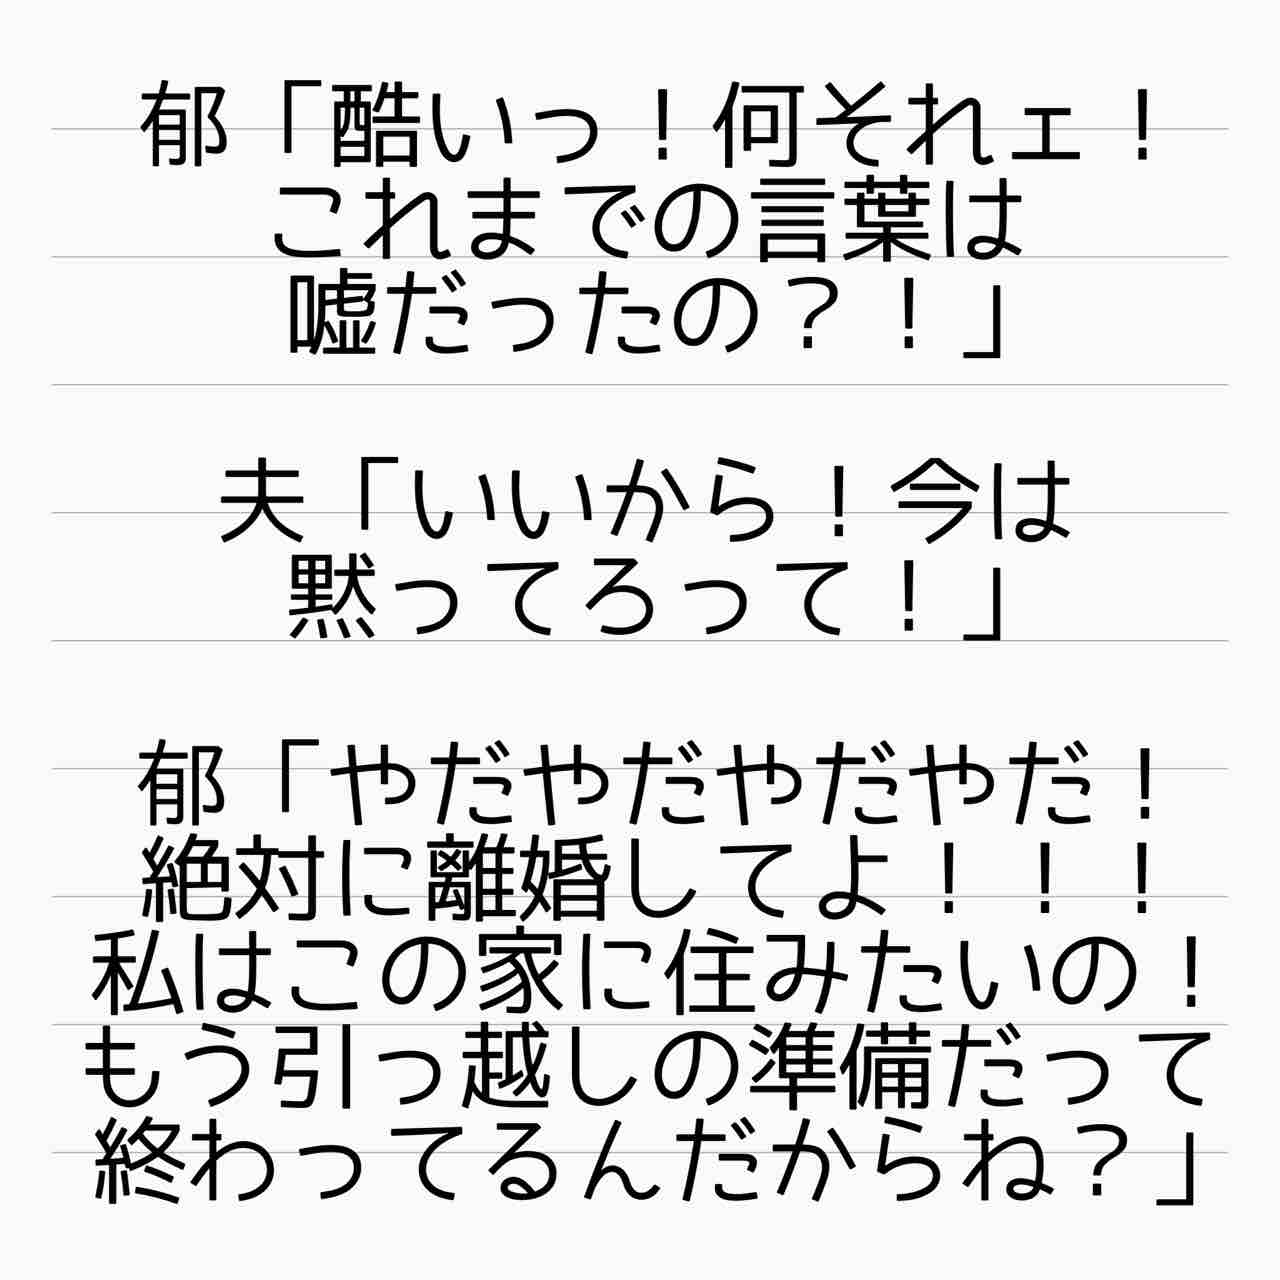 郁「酷いっ！何それェ！
これまでの言葉は
嘘だったの？！」
夫「いいから！今は
黙ってろって！」
郁「やだやだやだやだ！
絶対に離婚してよ！！！
私はこの家に住みたいの！
もう引っ越しの準備だって
終わってるんだからね？」